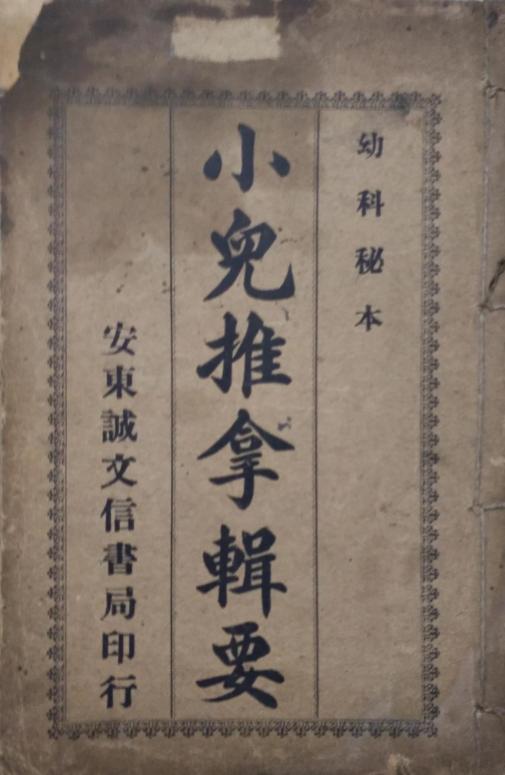 幼科秘本
小兒推拿輯要
安東誠文信書局印行